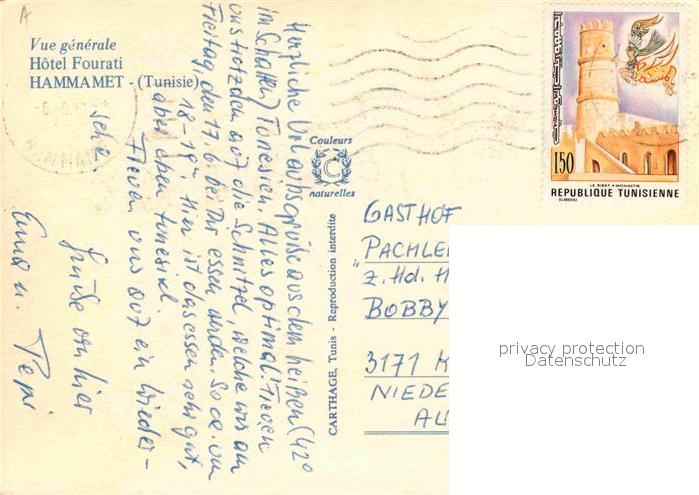 A
Vue générale
Hôtel Fourati
HAMMAMET - (Tunisie)
Herzliche Urlaubsgrüße aus dem heißen (42°
im Schatten) Tunesien. Alles optimal! Freuen
uns trotzdem auf die Schnitzel, welche wir am
Freitag, den 17.6. bei Dir essen werden. So ca. um
18-19ʰ. Hier ist das essen sehr gut,
aber eben tunesisch.
Freuen uns auf ein Wieder-
sehen.
Grüße von hier
u. Pepi
Couleurs
C
naturelles
CARTHAGE, Tunis - Reproduction interdite
150
LE RIBAT • MONASTIR
REPUBLIQUE TUNISIENNE
ELMEKKI
GASTHOF
PACHLE
z. Hd. H
BOBBY
3171 K
NIEDE
AU
privacy protection
Datenschutz